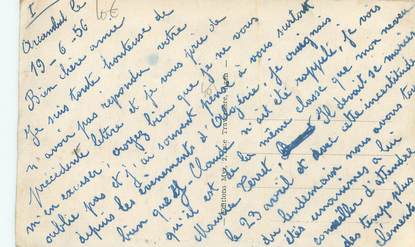 I
le
19-6-56
Bien chère amie
Je suis toute honteuse de
n'avoir pas répondu à votre
précédente lettre et je vous prie de
m'en excuser, croyez bien que je ne vous
oublie pas et j'ai souvent pensé à vous surtout
depuis les événements d'Algérie. Je craignais
bien que Claude n'ait été rappelé, je vois
qu'il est de la même classe que mon neveu
Maurice Il devait se marier
le 23 avril et devant cette incertitude
du lendemain nous avons tous
été unanimes à lui
conseiller d'attendre
des temps plus
cléments